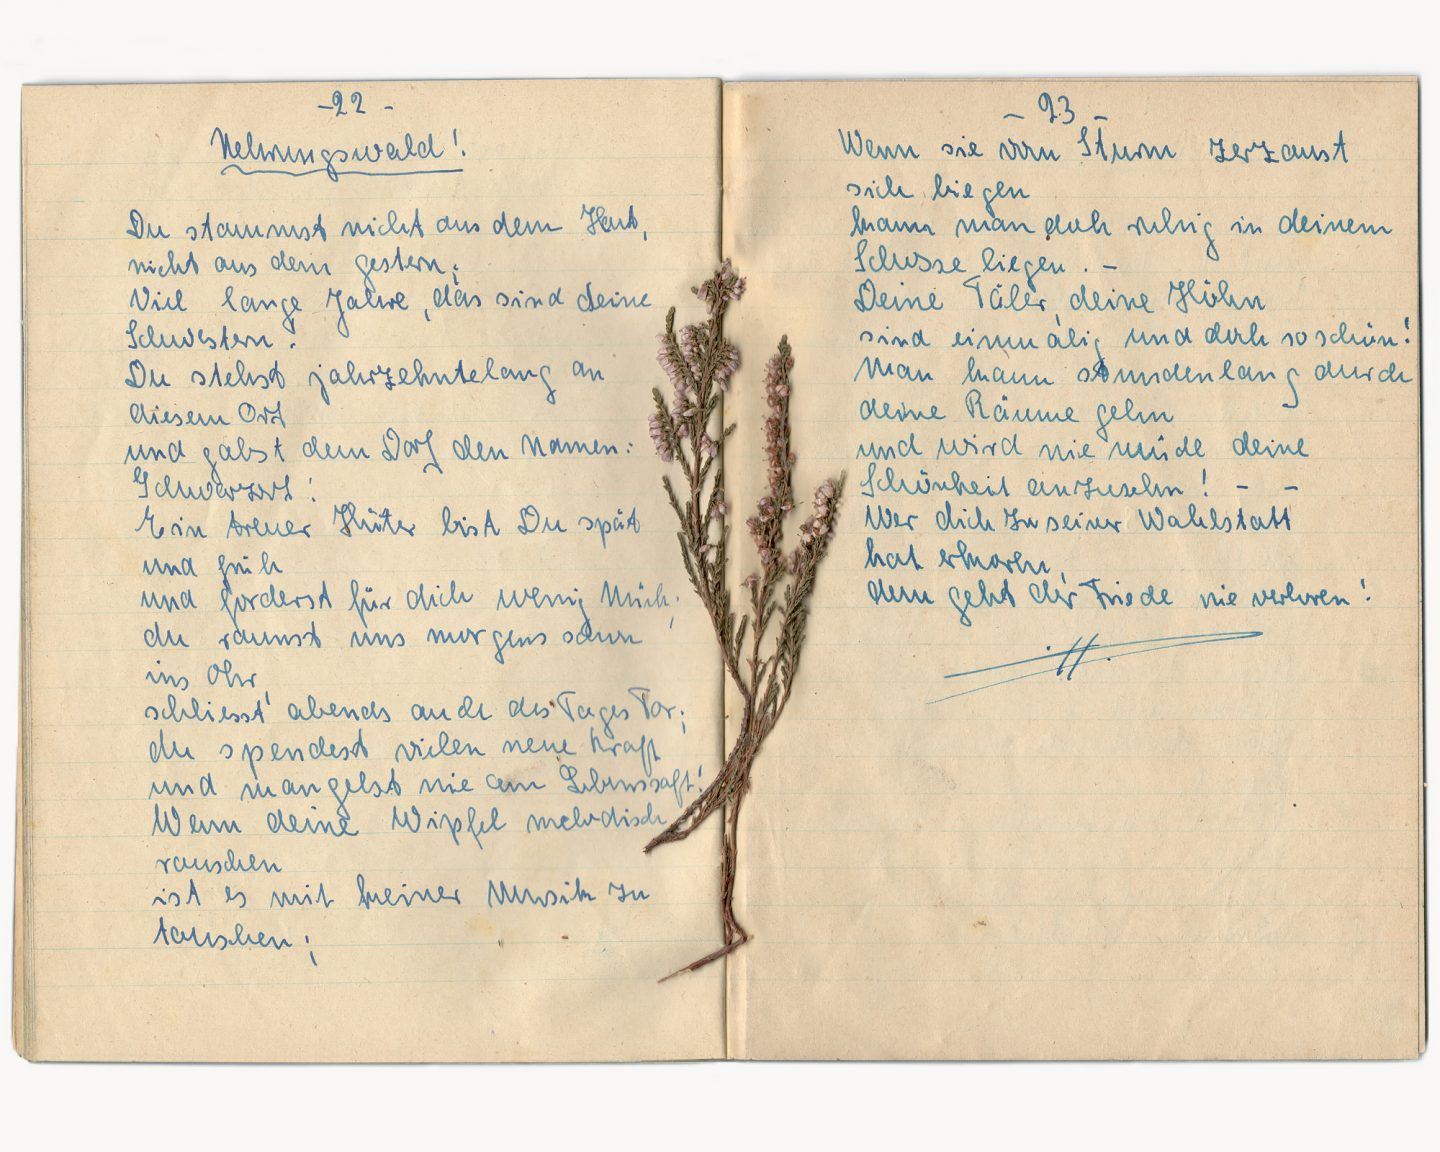 -22-
Nehrungswald!
Du stammst nicht aus dem Heut,
nicht aus dem gestern;
Viel lange Jahre, das sind deine
Schwestern!
Du stehst jahrzehntelang an
diesem Ort
und gabst dem Dorf den Namen:
Schwarzort!
Ein treuer Hüter bist Du spät
und früh
und forderst für dich wenig Müh;
du raunst uns morgens schon
ins Ohr
schliesst abends auch des Tages Tor;
du spendest vielen neue Kraft
und mangelst nie am Lebenssaft!
Wenn deine Wipfel melodisch
rauschen
ist es mit keiner Musik zu
tauschen;
- 23 -
Wenn sie vom Sturm zerzaust
sich biegen
kann man doch ruhig in deinem
Schosse liegen. -
Deine Täler, deine Höhn
sind einmalig und doch so schön!
Man kann stundenlang durch
deine Räume gehn
und wird nie müde deine
Schönheit anzusehn! - -
Wer dich zu seiner Wahlstatt
hat erkorn,
dem geht der Friede nie verloren!